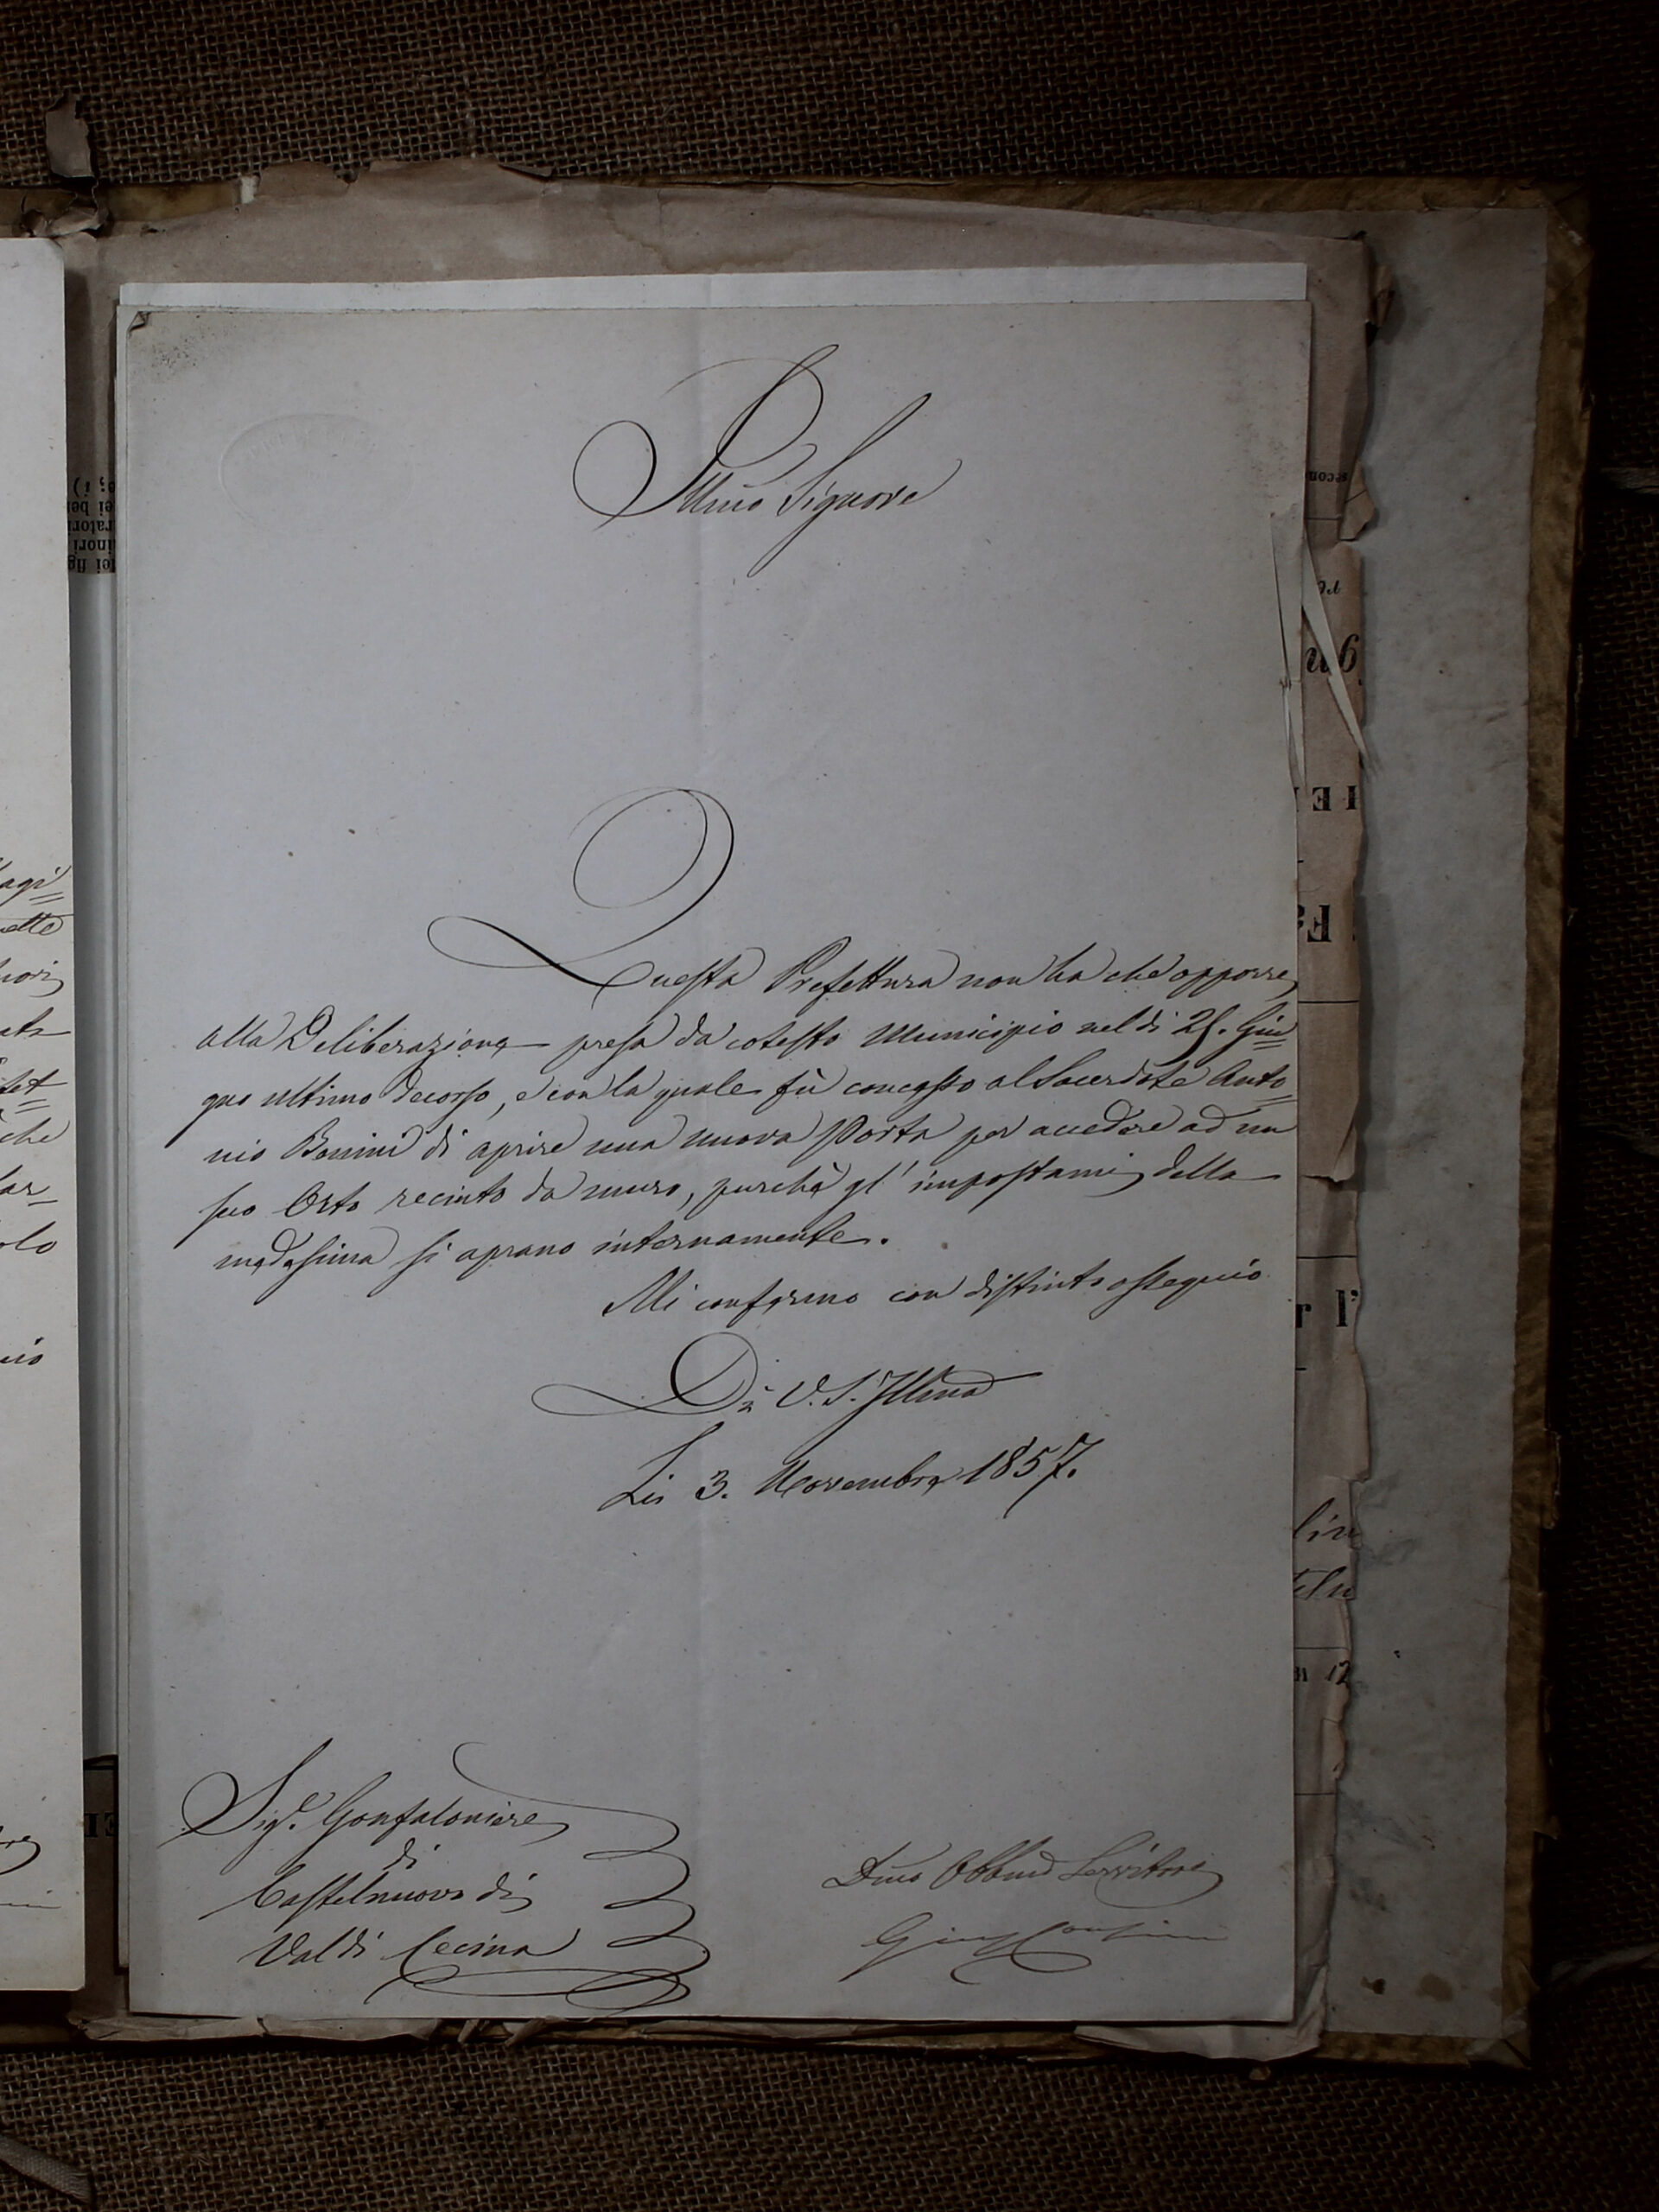 Illmo Signore
Questa Prefettura non ha che opporre
alla Deliberazione presa da cotesto Municipio nel di 25. Giu=
gno ultimo decorso, e con la quale fù concesso al Sacerdote Anto=
nio Bonini di aprire una nuova Porta per accedere ad un
suo Orto recinto da muro, purchè gl' impostami della
medesima si aprano internamente.
Mi confermo con distinto ossequio
Di V. S. Illma
Li 3. Novembre 1857.
Sigr. Gonfaloniere
di
Castelnuovo di
Val di Cecina
Dmo Obbmo Servitore
agi=
che
olo